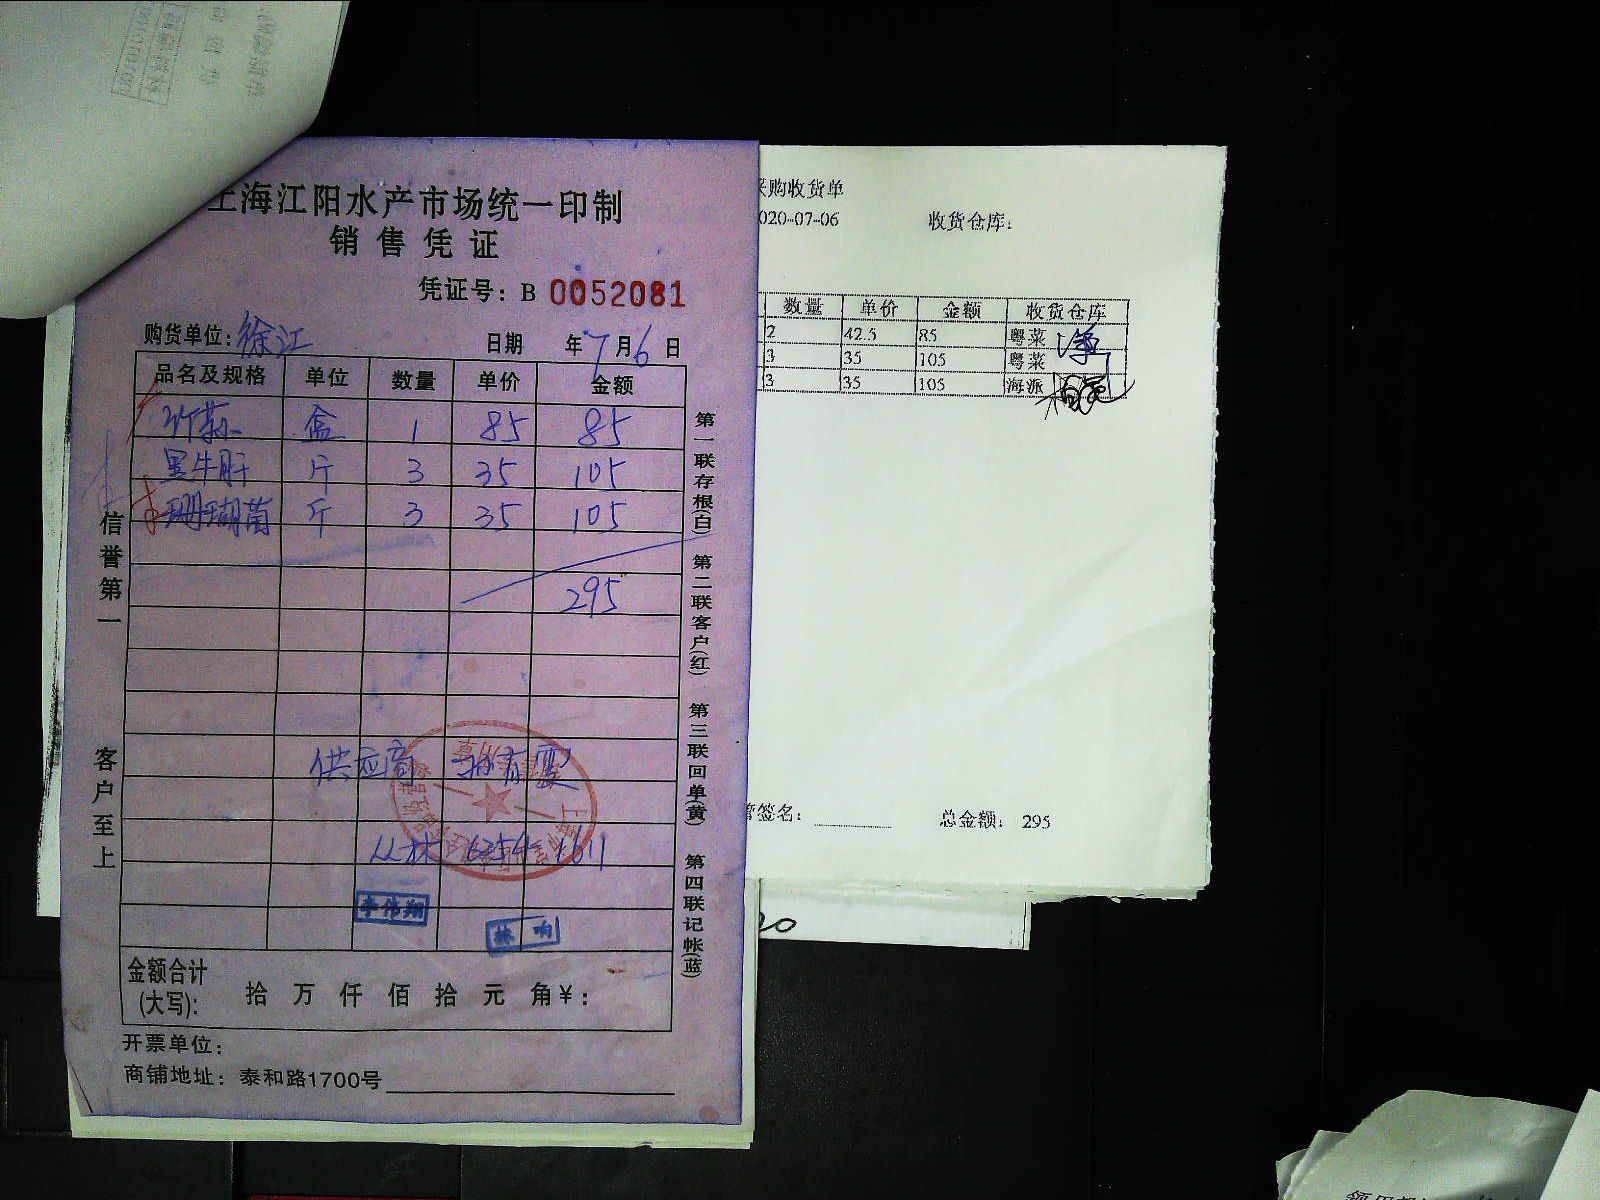 上海江阳水产市场统一印制
销售凭证
凭证号：B 0052081
购货单位：徐江 日期 年7月6日
品名及规格 单位 数量 单价 金额
竹荪 盒 1 85 85
黑牛肝 斤 3 35 105
珊瑚菌 斤 3 35 105
295
供应商
李伟翔
林响
金额合计
(大写)： 拾 万 仟 佰 拾 元 角¥：
开票单位：
商铺地址：泰和路1700号
信誉第一
客户至上
第一联存根(白) 第二联客户(红) 第三联回单(黄) 第四联记帐(蓝)
购收货单
020-07-06 收货仓库：
数量 单价 金额 收货仓库
2 42.5 85 粤菜
3 35 105 粤菜
3 35 105 海派
签名： 总金额： 295